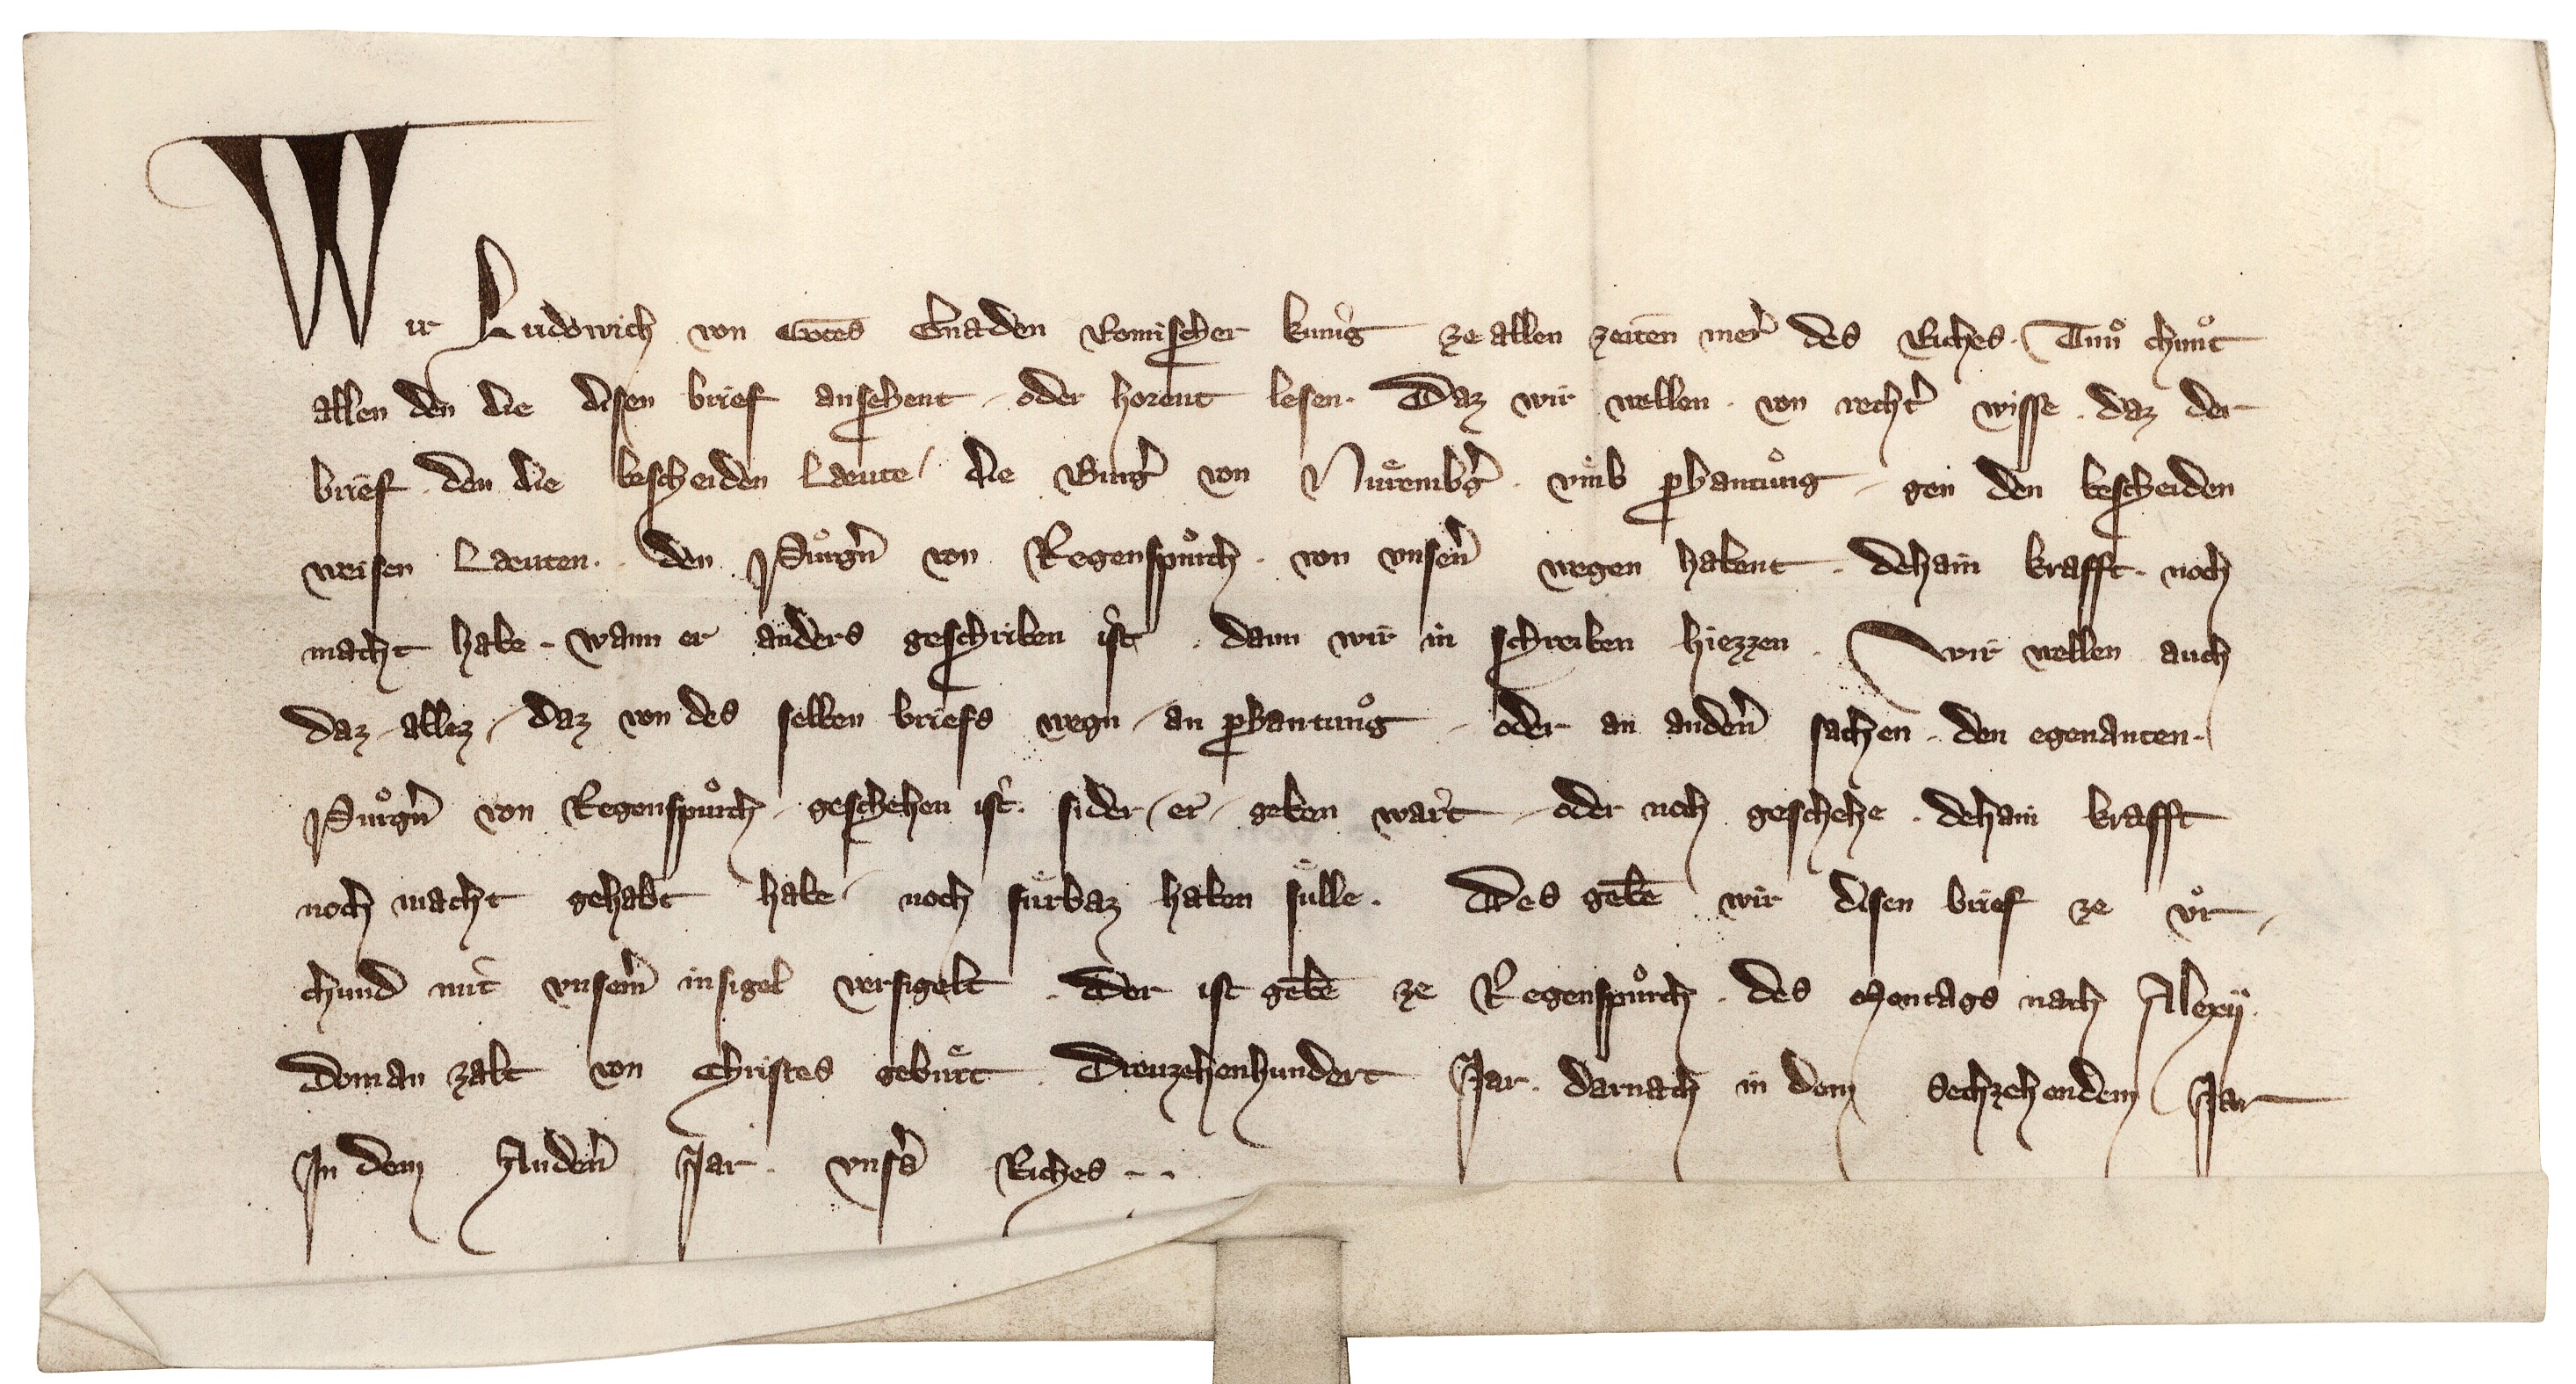 Wir Ludowich von Gotes Gnaden Romischer kunig ze allen zeiten merˀ des Riches. Tuͦn chuͦnt
allen den die disen brief ansehent oder horent lesen. Daz wir wellen. von rechtˀ wisse. daz der
brief. den die bescheiden Laeute die Burgˀ von Nuͤrembgˀ. vmb phantung gen den bescheiden
weisen Laeuten. den Puͦrgnˀ von Regenspuͦrch. von vnsernˀ wegen habent. dehain krafft. noch
macht habe. wann er anders geschriben ist. dann wir in schreiben hiezzen. Wir wellen auch
daz allez, daz von des selben briefs wegn an phantuͦng oder an andernˀ sachen. den egenanten.
Puͦrgnˀ von Regenspuͦrch, geschehen ist. sider er geben wart oder noch geschehe. dehain krafft
noch macht gehabt habe noch fuͤrbaz haben suͤlle. Des gebē wir disen brief ze vͦr
chund mit vnsermˀ insigel versigelt. Der ist gebē ze Regenspuͦrch. des Montags nach Alexij.
Do man zalt von Christes gebuͤrt. Dreuzehenhundert Jar. darnach in dem Sechzehendem Jar
In dem Andernˀ Jar. vnsˀs Riches